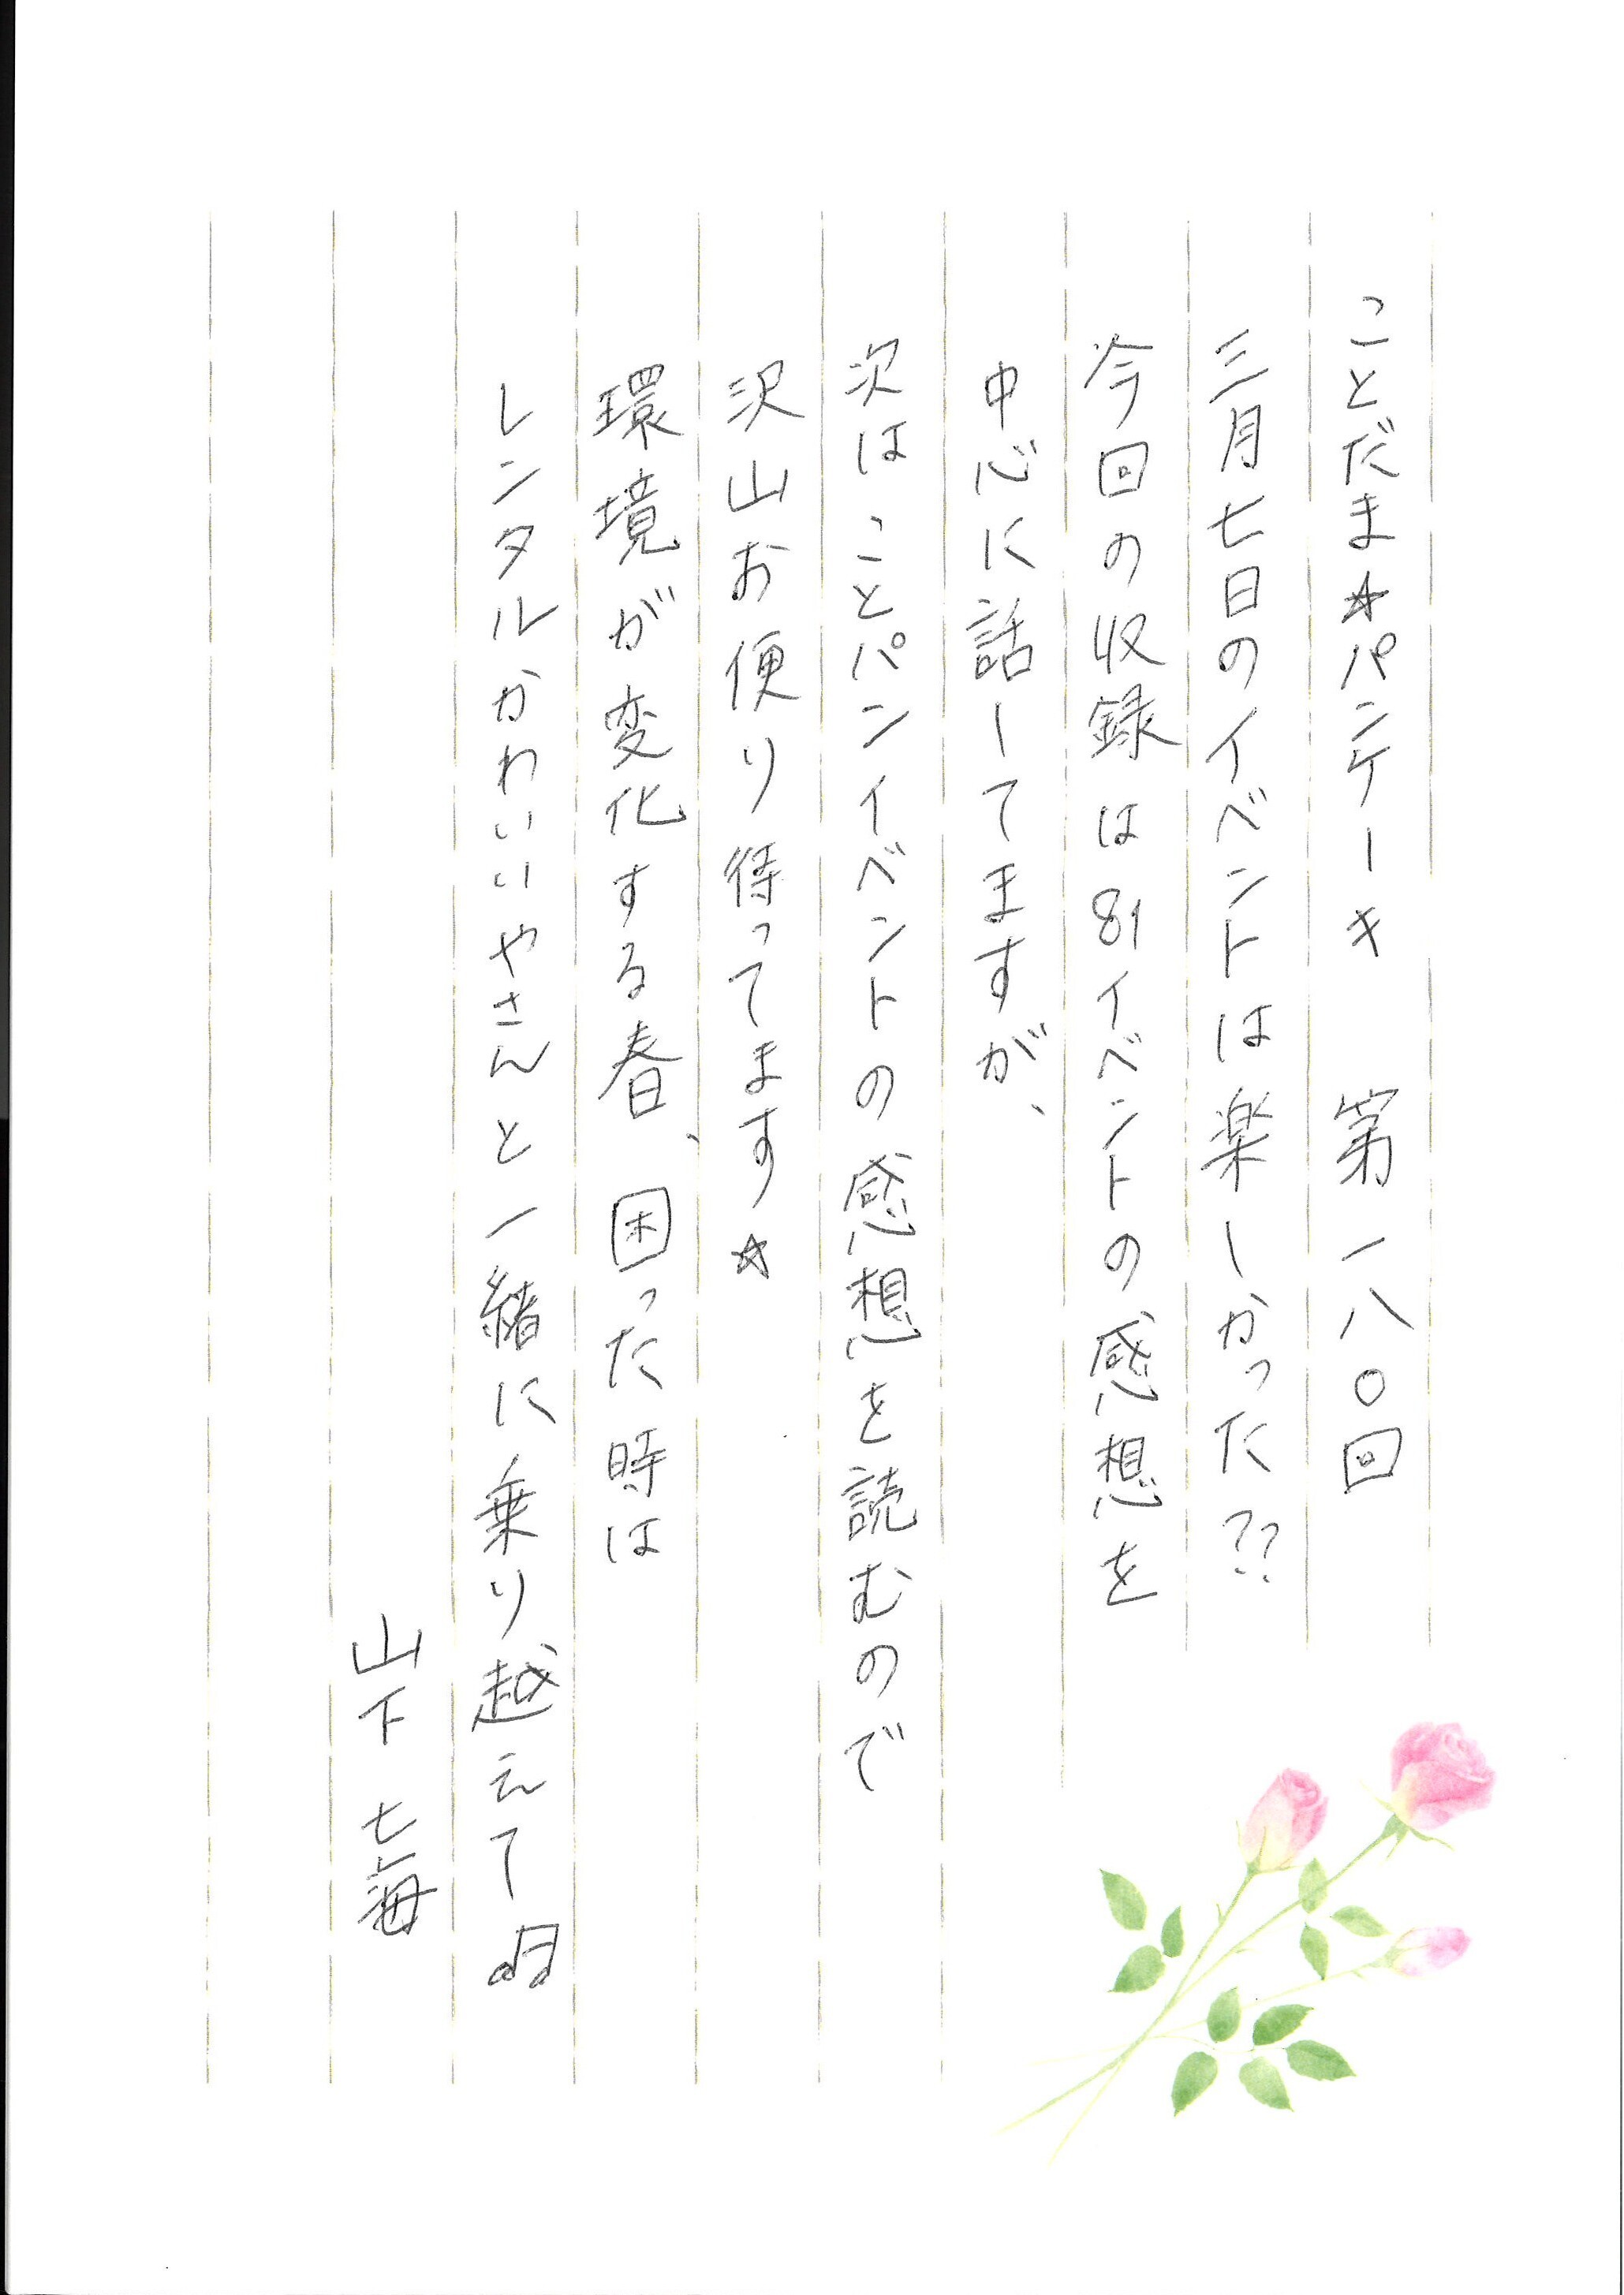 ことだま☆パンケーキ　第一八〇回
三月七日のイベントは楽しかった??
今回の収録は81イベントの感想を
中心に話してますが、
次はことパンイベントの感想を読むので
沢山お便り待ってます☆
環境が変化する春、困った時は
レンタルかわいいやさんと一緒に乗り越えて♫
山下七海